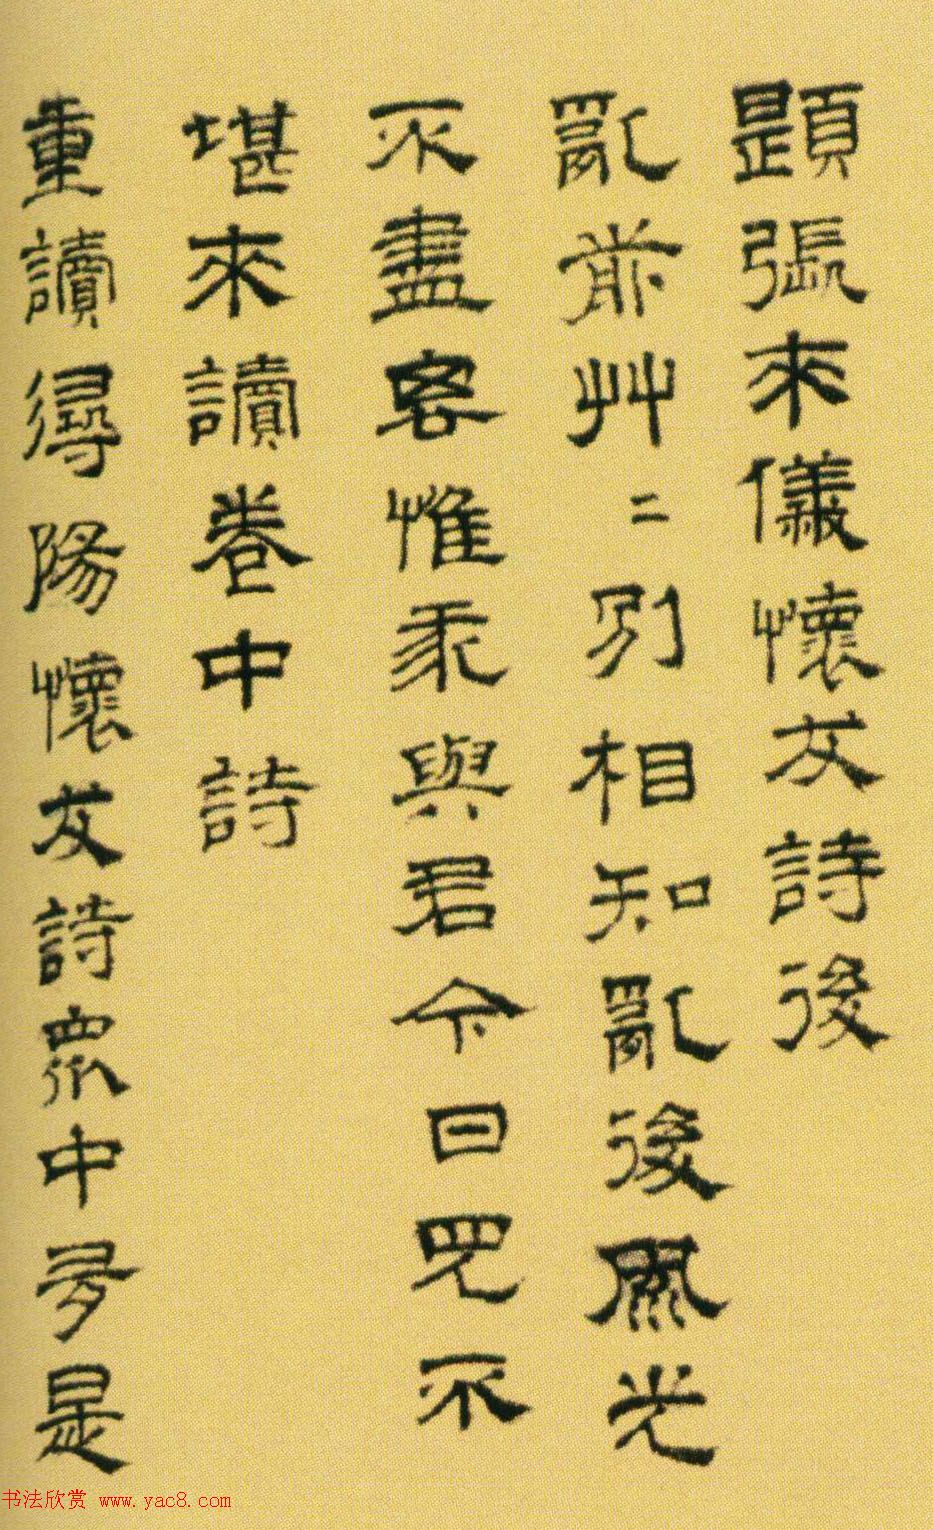 題張來儀懷友詩後
亂前艸〻別相知亂後光
不盡惟與君今日不
堪來讀卷中詩
重讀尋陽懷友詩眾中多是
书法欣赏 www.yac8.com